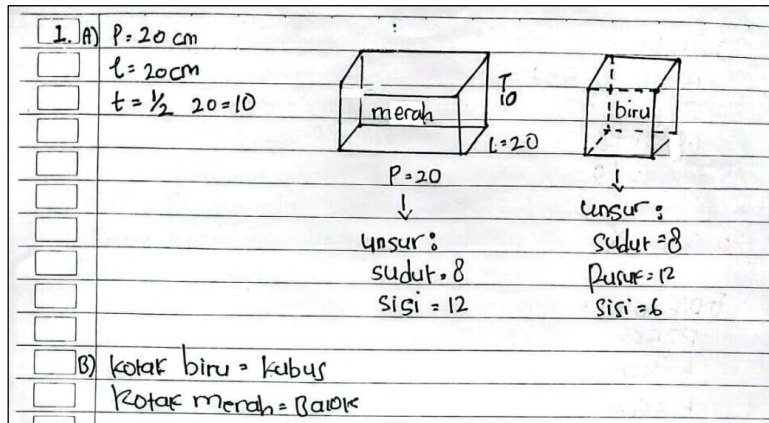 1. A) P = 20 cm
l = 20 cm
t = 1/2 20 = 10
merah
T
10
L = 20
P = 20
↓
unsur :
sudut = 8
sisi = 12
biru
↓
unsur :
sudut = 8
Rusuk = 12
sisi = 6
B) kotak biru = kubus
Kotak merah = Balok